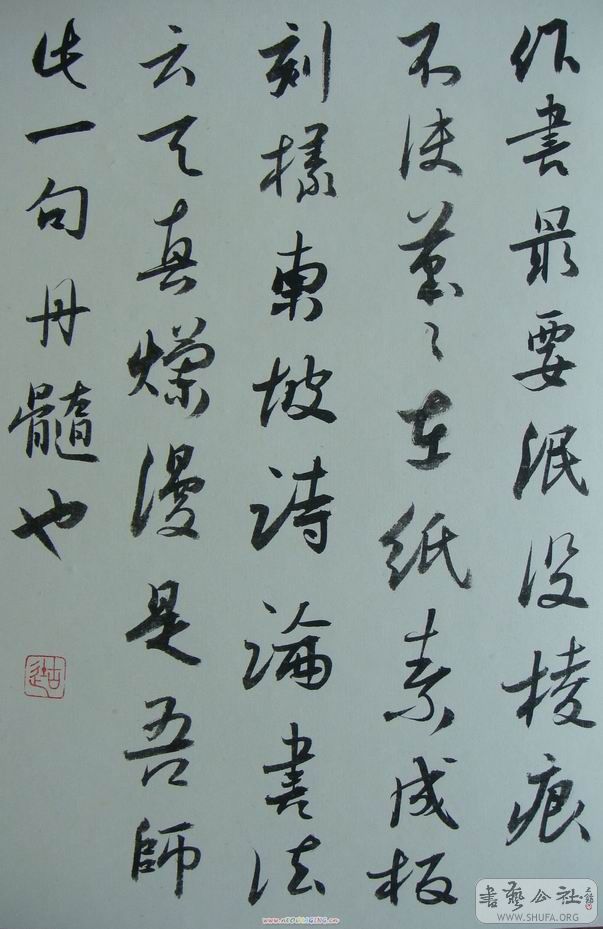 作書最要泯没棱痕
不使筆々在紙素成板
刻樣東坡詩論書法
云天真爛漫是吾師
此一句丹髓也
書藝公社
WWW.SHUFA.ORG